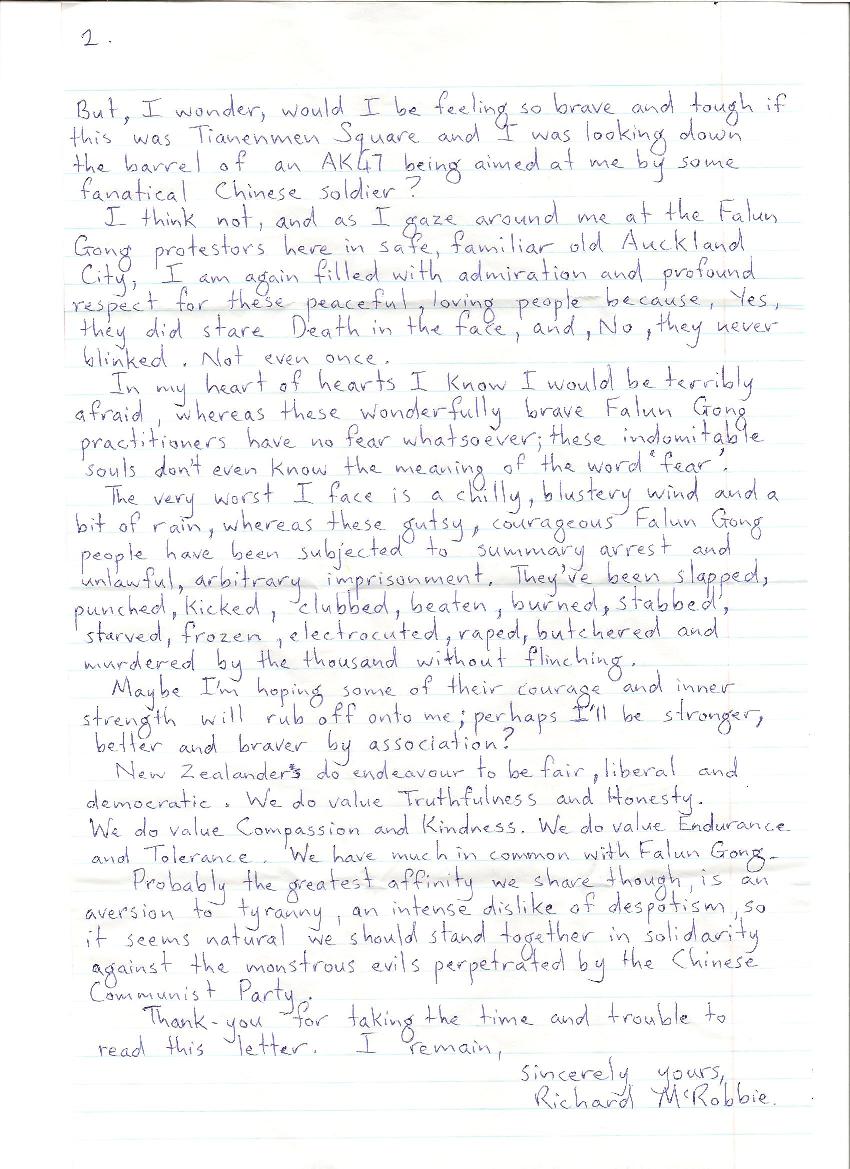 2.
But, I wonder, would I be feeling so brave and tough if
this was Tianenmen Square and I was looking down
the barrel of an AK47 being aimed at me by some
fanatical Chinese soldier?
I think not, and as I gaze around me at the Falun
Gong protestors here in safe, familiar old Auckland
City, I am again filled with admiration and profound
respect for these peaceful, loving people because, Yes,
they did stare Death in the face, and, No, they never
blinked. Not even once.
In my heart of hearts I know I would be terribly
afraid, whereas these wonderfully brave Falun Gong
practitioners have no fear whatsoever; these indomitable
souls don't even know the meaning of the word 'fear'.
The very worst I face is a chilly, blustery wind and a
bit of rain, whereas these gutsy, courageous Falun Gong
people have been subjected to summary arrest and
unlawful, arbitrary imprisonment. They've been slapped,
punched, kicked, clubbed, beaten, burned, stabbed,
starved, frozen, electrocuted, raped, butchered and
murdered by the thousand without flinching.
Maybe I'm hoping some of their courage and inner
strength will rub off onto me; perhaps I'll be stronger,
better and braver by association?
New Zealanders do endeavour to be fair, liberal and
democratic. We do value Truthfulness and Honesty.
We do value Compassion and Kindness. We do value Endurance
and Tolerance. We have much in common with Falun Gong.
Probably the greatest affinity we share though, is an
aversion to tyranny, an intense dislike of despotism, so
it seems natural we should stand together in solidarity
against the monstrous evils perpetrated by the Chinese
Communist Party.
Thank-you for taking the time and trouble to
read this letter. I remain,
sincerely yours,
Richard McRobbie.